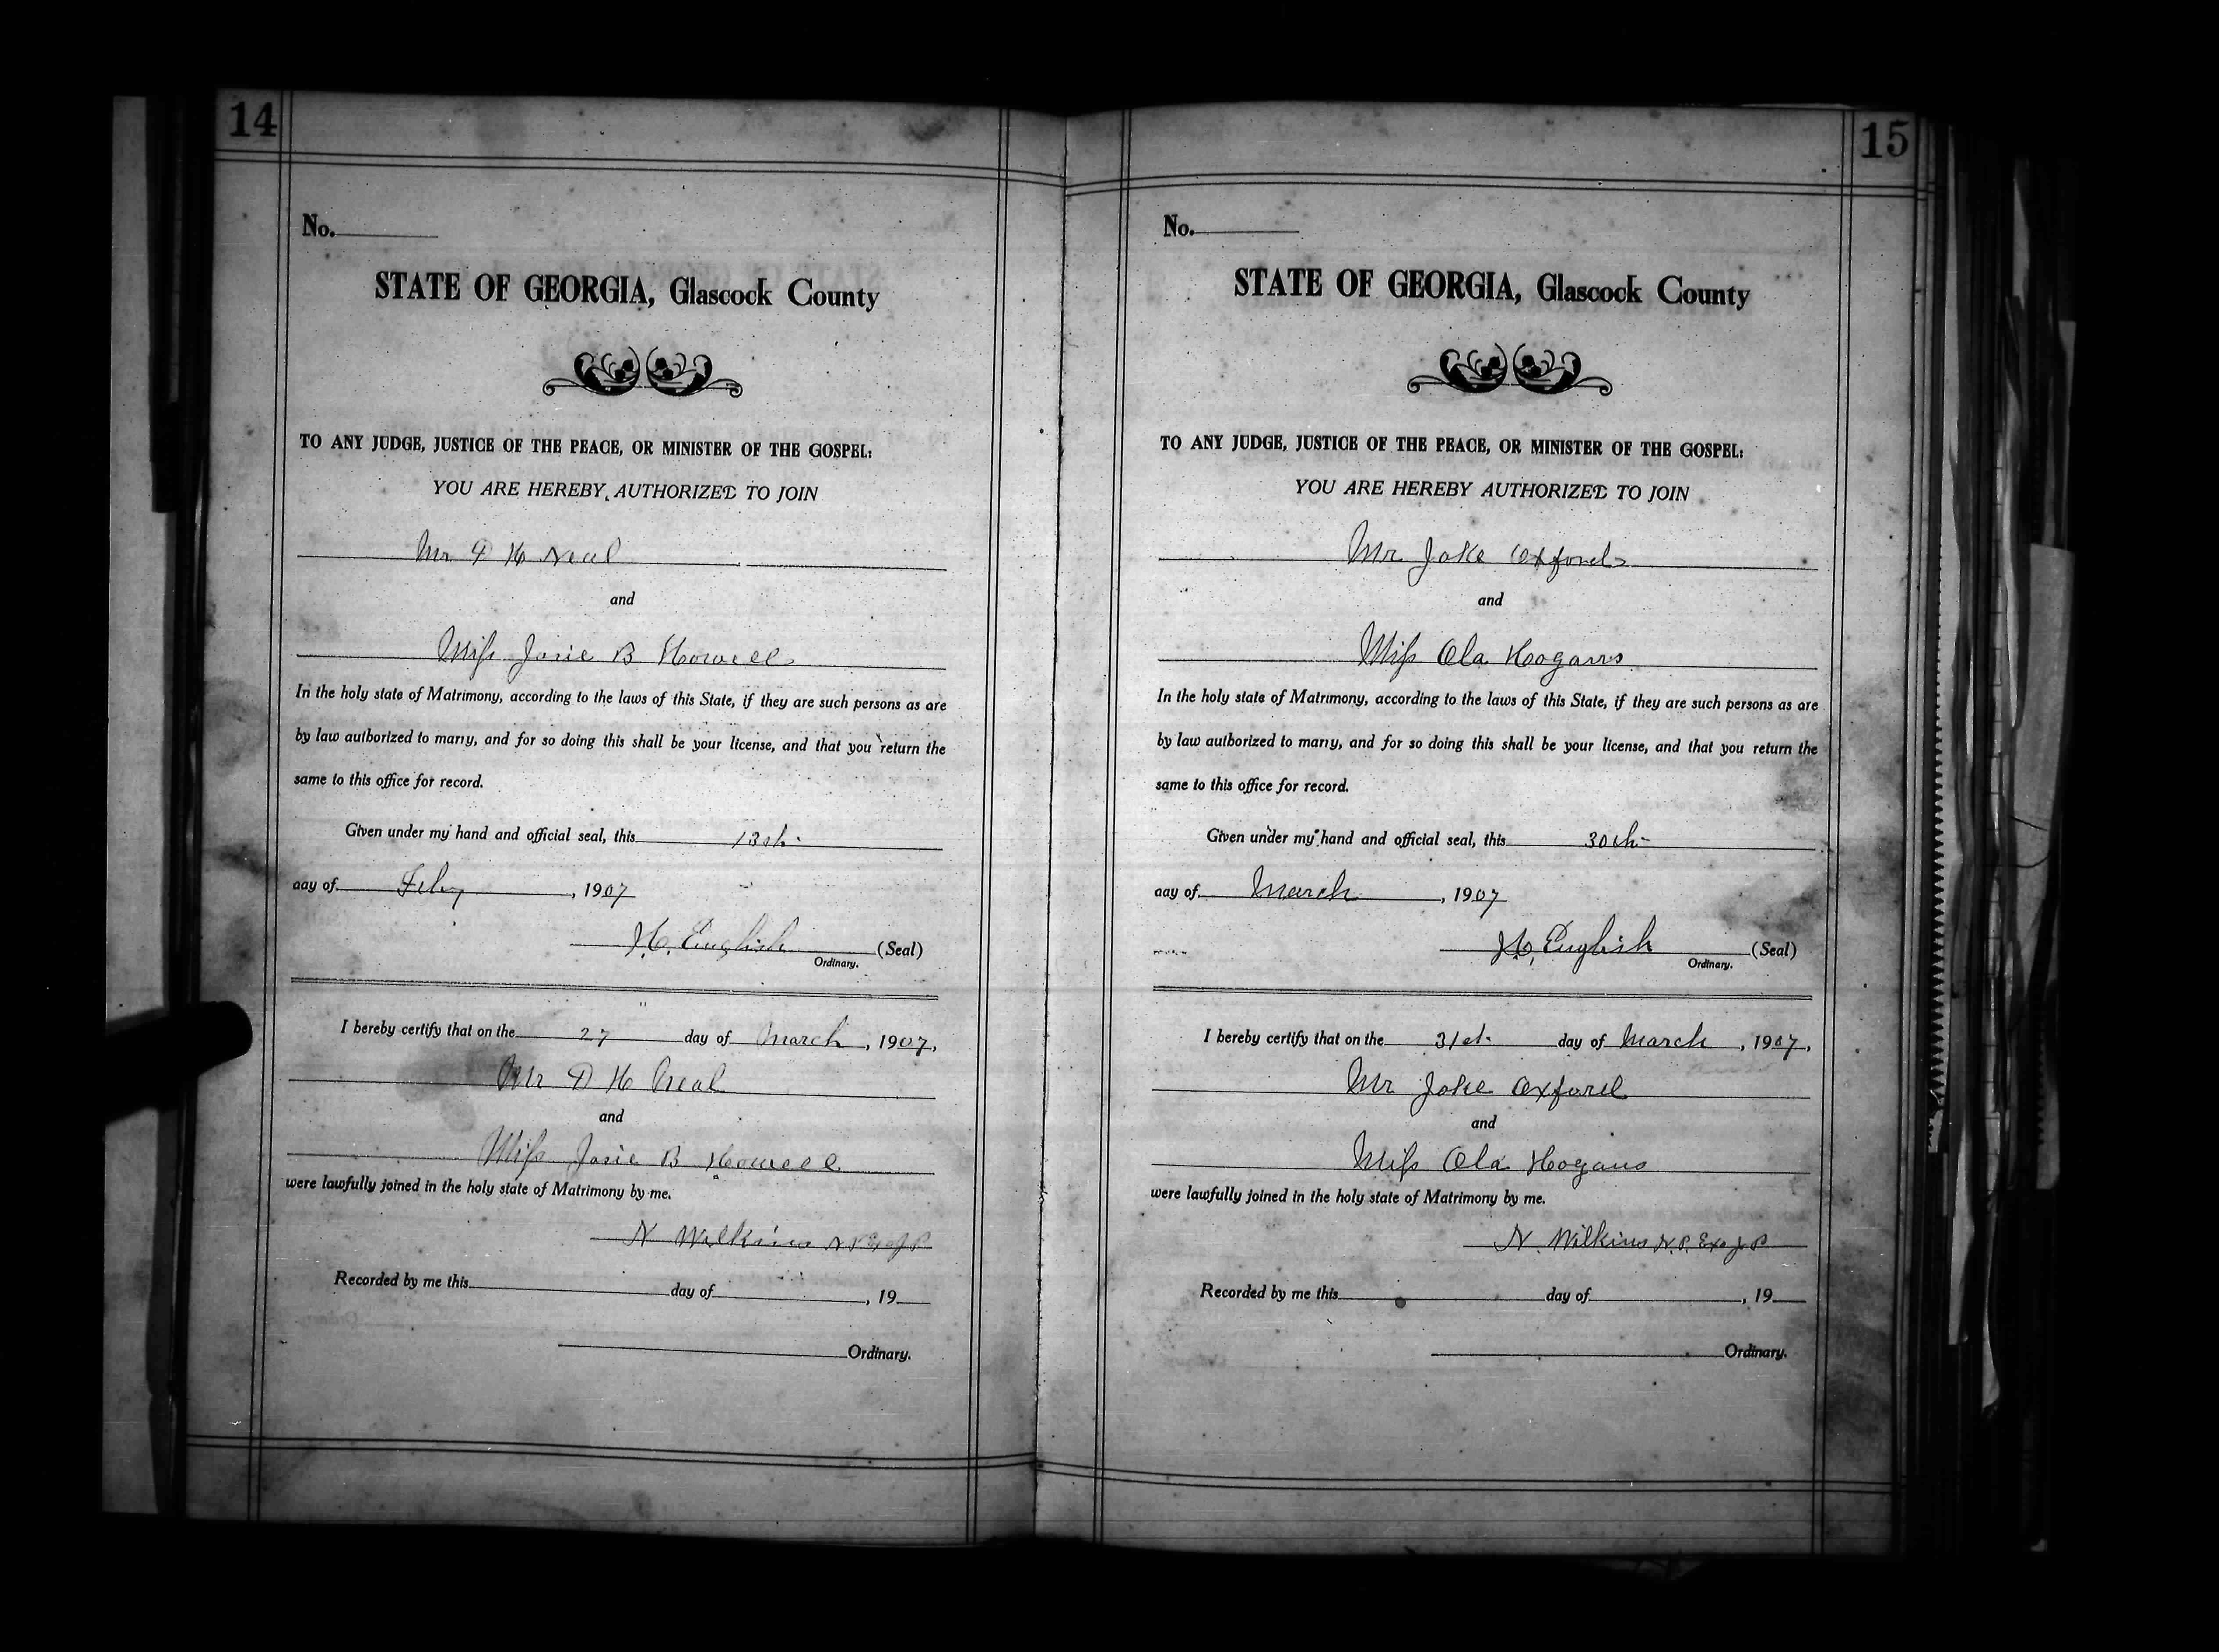 14
No.
STATE OF GEORGIA, Glascock County
TO ANY JUDGE, JUSTICE OF THE PEACE, OR MINISTER OF THE GOSPEL:
YOU ARE HEREBY AUTHORIZED TO JOIN
Mr D H Neal
and
Miss Josie B Howell
In the holy state of Matrimony, according to the laws of this State, if they are such persons as are
by law authorized to marry, and for so doing this shall be your license, and that you return the
same to this office for record.
Given under my hand and official seal, this 13th
day of Feby, 1907
H. English (Seal)
Ordinary.
I hereby certify that on the 27 day of March, 1907,
Mr D H Neal
and
Miss Josie B Howell
were lawfully joined in the holy state of Matrimony by me.
N Wilkins
Recorded by me this day of , 19
Ordinary.
15
No.
STATE OF GEORGIA, Glascock County
TO ANY JUDGE, JUSTICE OF THE PEACE, OR MINISTER OF THE GOSPEL:
YOU ARE HEREBY AUTHORIZED TO JOIN
Mr Jake Oxford
and
Miss Ola Hogans
In the holy state of Matrimony, according to the laws of this State, if they are such persons as are
by law authorized to marry, and for so doing this shall be your license, and that you return the
same to this office for record.
Given under my hand and official seal, this 30th
day of March, 1907
H. English (Seal)
Ordinary.
I hereby certify that on the 31st day of March, 1907,
Mr Jake Oxford
and
Miss Ola Hogans
were lawfully joined in the holy state of Matrimony by me.
N. Wilkins N.P. Exo J P
Recorded by me this day of , 19
Ordinary.